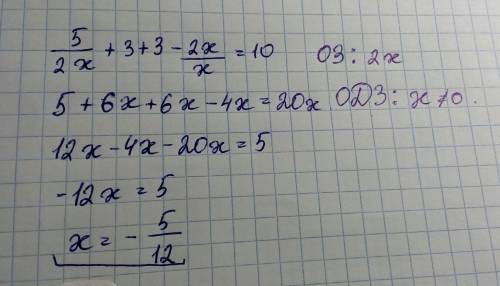 5/2x + 3 + 3 - 2x/x = 10 ОЗ: 2x
5 + 6x + 6x - 4x = 20x ОДЗ: x ≠ 0.
12x - 4x - 20x = 5
-12x = 5
x = - 5/12